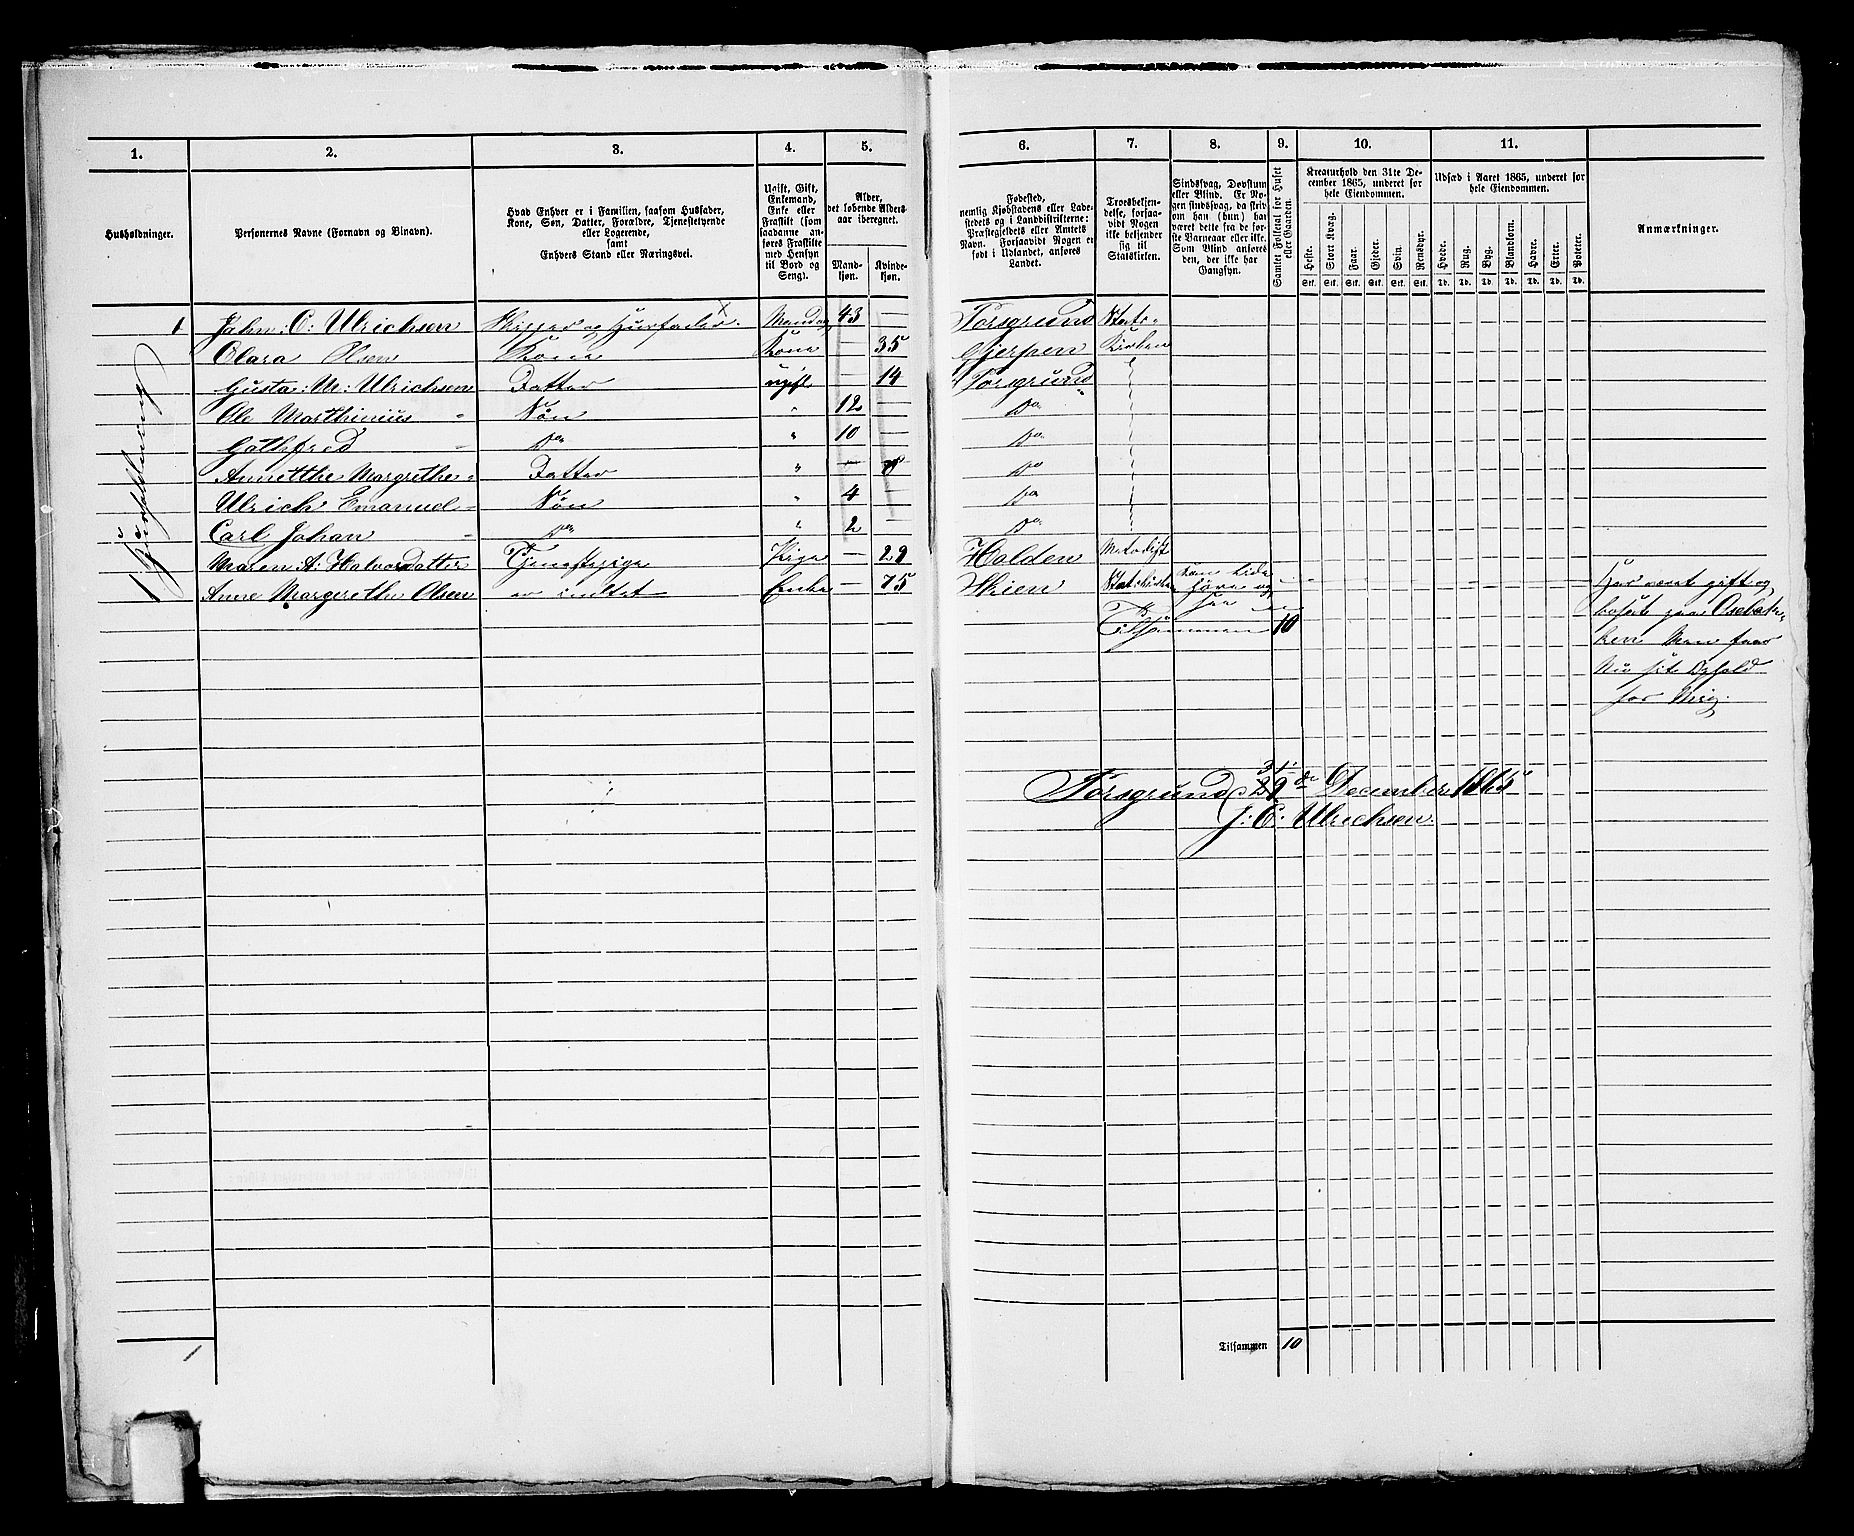 1. 2. 3. 4. 5. 6. 7. 8. 9. 10. 11.
Husholdninger.
Personernes Navne (Fornavn og Binavn).
Hvad Enhver er i Familien, saasom Husfader,
Kone, Søn, Datter, Forældre, Tjenestetyende
eller Logerende,
samt
Enhvers Stand eller Næringsvei.
Ugift, Gift,
Enkemand,
Enke eller
Fraskilt (som
saadanne an-
føres Fraskilte
med Hensyn
til Bord og
Seng).
Alder,
det løbende Alders-
aar iberegnet.
Mand-
kjøn.
Kvinde-
kjøn.
Fødested,
nemlig Kjøbstadens eller Lade-
stedets og i Landdistrikterne:
Præstegjeldets eller Amtets
Navn. Forsaavidt Nogen er
født i Udlandet, anføres
Landet.
Troesbekjen-
delse, forsaa-
vidt Nogen
ikke bekjender
sig til
Statskirken.
Sindssvag, Døvstum
eller Blind. Er No-
gen sindssvag, da skriv
om han (hun) har
været dette fra de før-
ste Barneaar eller ikke.
Som Blind anføres
den, der ikke har
Gangsyn.
Samlet Folketal for Huset
eller Gaarden.
Kreaturhold den 31te De-
cember 1865, underet for
hele Eiendommen.
Heste. Stort Kvæg. Faar. Gjeder. Svin. Rensdyr.
Stk. Stk. Stk. Stk. Stk. Stk.
Udsæd i Aaret 1865, underet for
hele Eiendommen.
Hvede. Rug. Byg. Blandkorn. Havre. Erter. Poteter.
Td. Td. Td. Td. Td. Td. Td.
Anmærkninger.
1 Huusholdning
1 John: C: Ulrichsen Skipper og Huusfader Mand 43 — Porsgrund Stats-
Clara Olsen Kone Kone — 35 Gjerpen Kirken
Gusta: M: Ulrichsen Datter ugift — 14 Porsgrund
Ole Marthinius " Søn " 12 — Do
Gothfred " Do " 10 — Do
Annethe Margrethe " Datter " — Do
Ulrich Emanuel " Søn " 4 — Do
Carl Johan " Do " 2 — Do
Maren A: Halvorsdatter Tjenestepige Pige — 29 Holden Metodist
Anne Margrethe Olsen Enke — 75 Skien Statskirken
Tilsammen 10
Har været gift og
bosat paa
Men faar
Nu sit Ophold
for Mig.
Porsgrund 31 29 de December 1865
J: C: Ulrichsen
Tilsammen 10
1